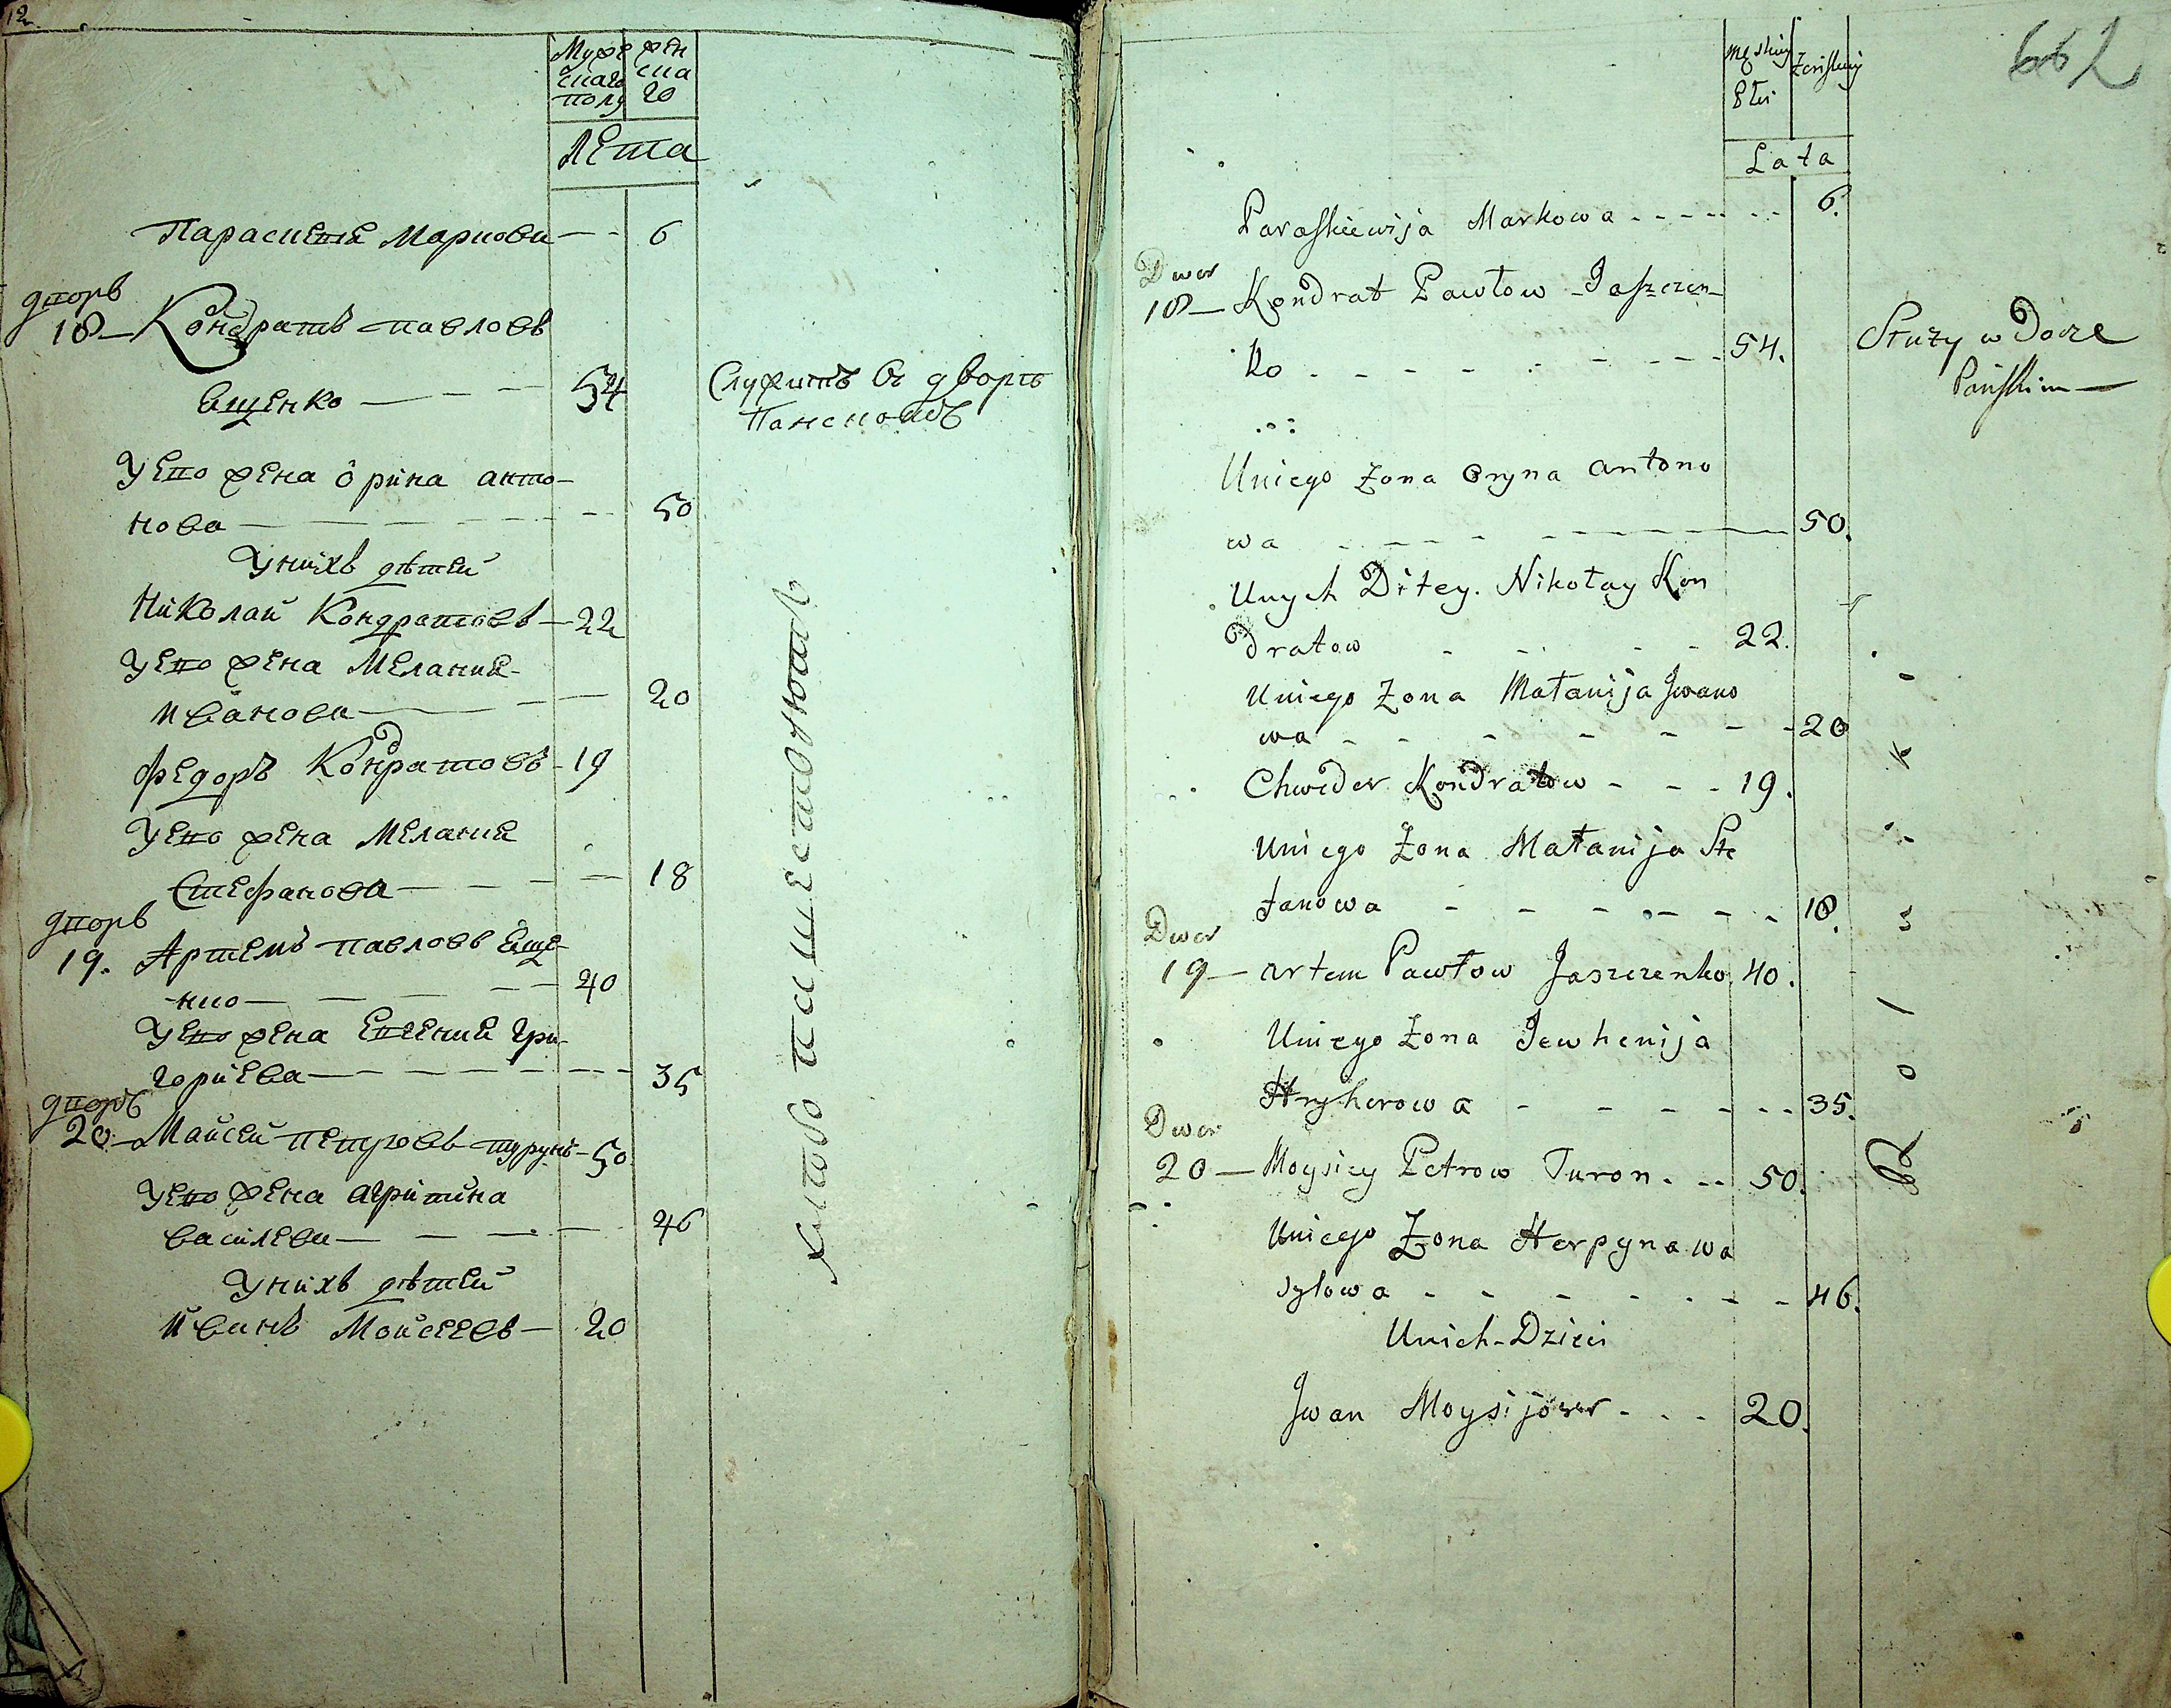 12
Муже
скаго
полу
жен
ска
го
Лета
Параскевіе Маркова 6
дворъ
18 Кондратъ павловъ
Ещенко 54
Служитъ въ дворѣ
Панскомъ
У его жена орина анто-
нова 50
У нихъ дѣтей
Николай Кондратовъ 22
У его жена Мелание
Иванова 20
Федоръ Кондратовъ 19
У его жена Мелание
Стефанова 18
дворъ
19. Артемъ павловъ Еще-
нко 40
У его жена Евгение Гри-
горіева 35
дворъ
20 Майсей петровъ турунъ 50
У его жена агрипина
василева 46
У нихъ дѣтей
Иванъ Мойсеевъ 20
662
Męskiey
Płci
Żeńskiey
Lata
Paraskiewija Markowa 6.
Dwor
18 Kondrat Pawłow Jaszczen-
ko 54.
Służy w Dorze
Pańskim
Uniego Żona Oryna Antono
wa 50.
Unych Ditey. Nikołay Kon
dratow 22.
Uniego Żona Małanija Jwano
wa 20
Chweder Kondratow 19.
Uniego Żona Małanija Ste
fanowa 18.
Dwor
19 Artem Pawłow Jaszczenko 40.
Uniego Żona Jewhenija
Hryhorowa 35.
Dwor
20 Moysiey Petrow Turon 50.
Uniego Żona Horpyna Wa
sylowa 46.
Unich Dzieci
Jwan Moysijow 20.